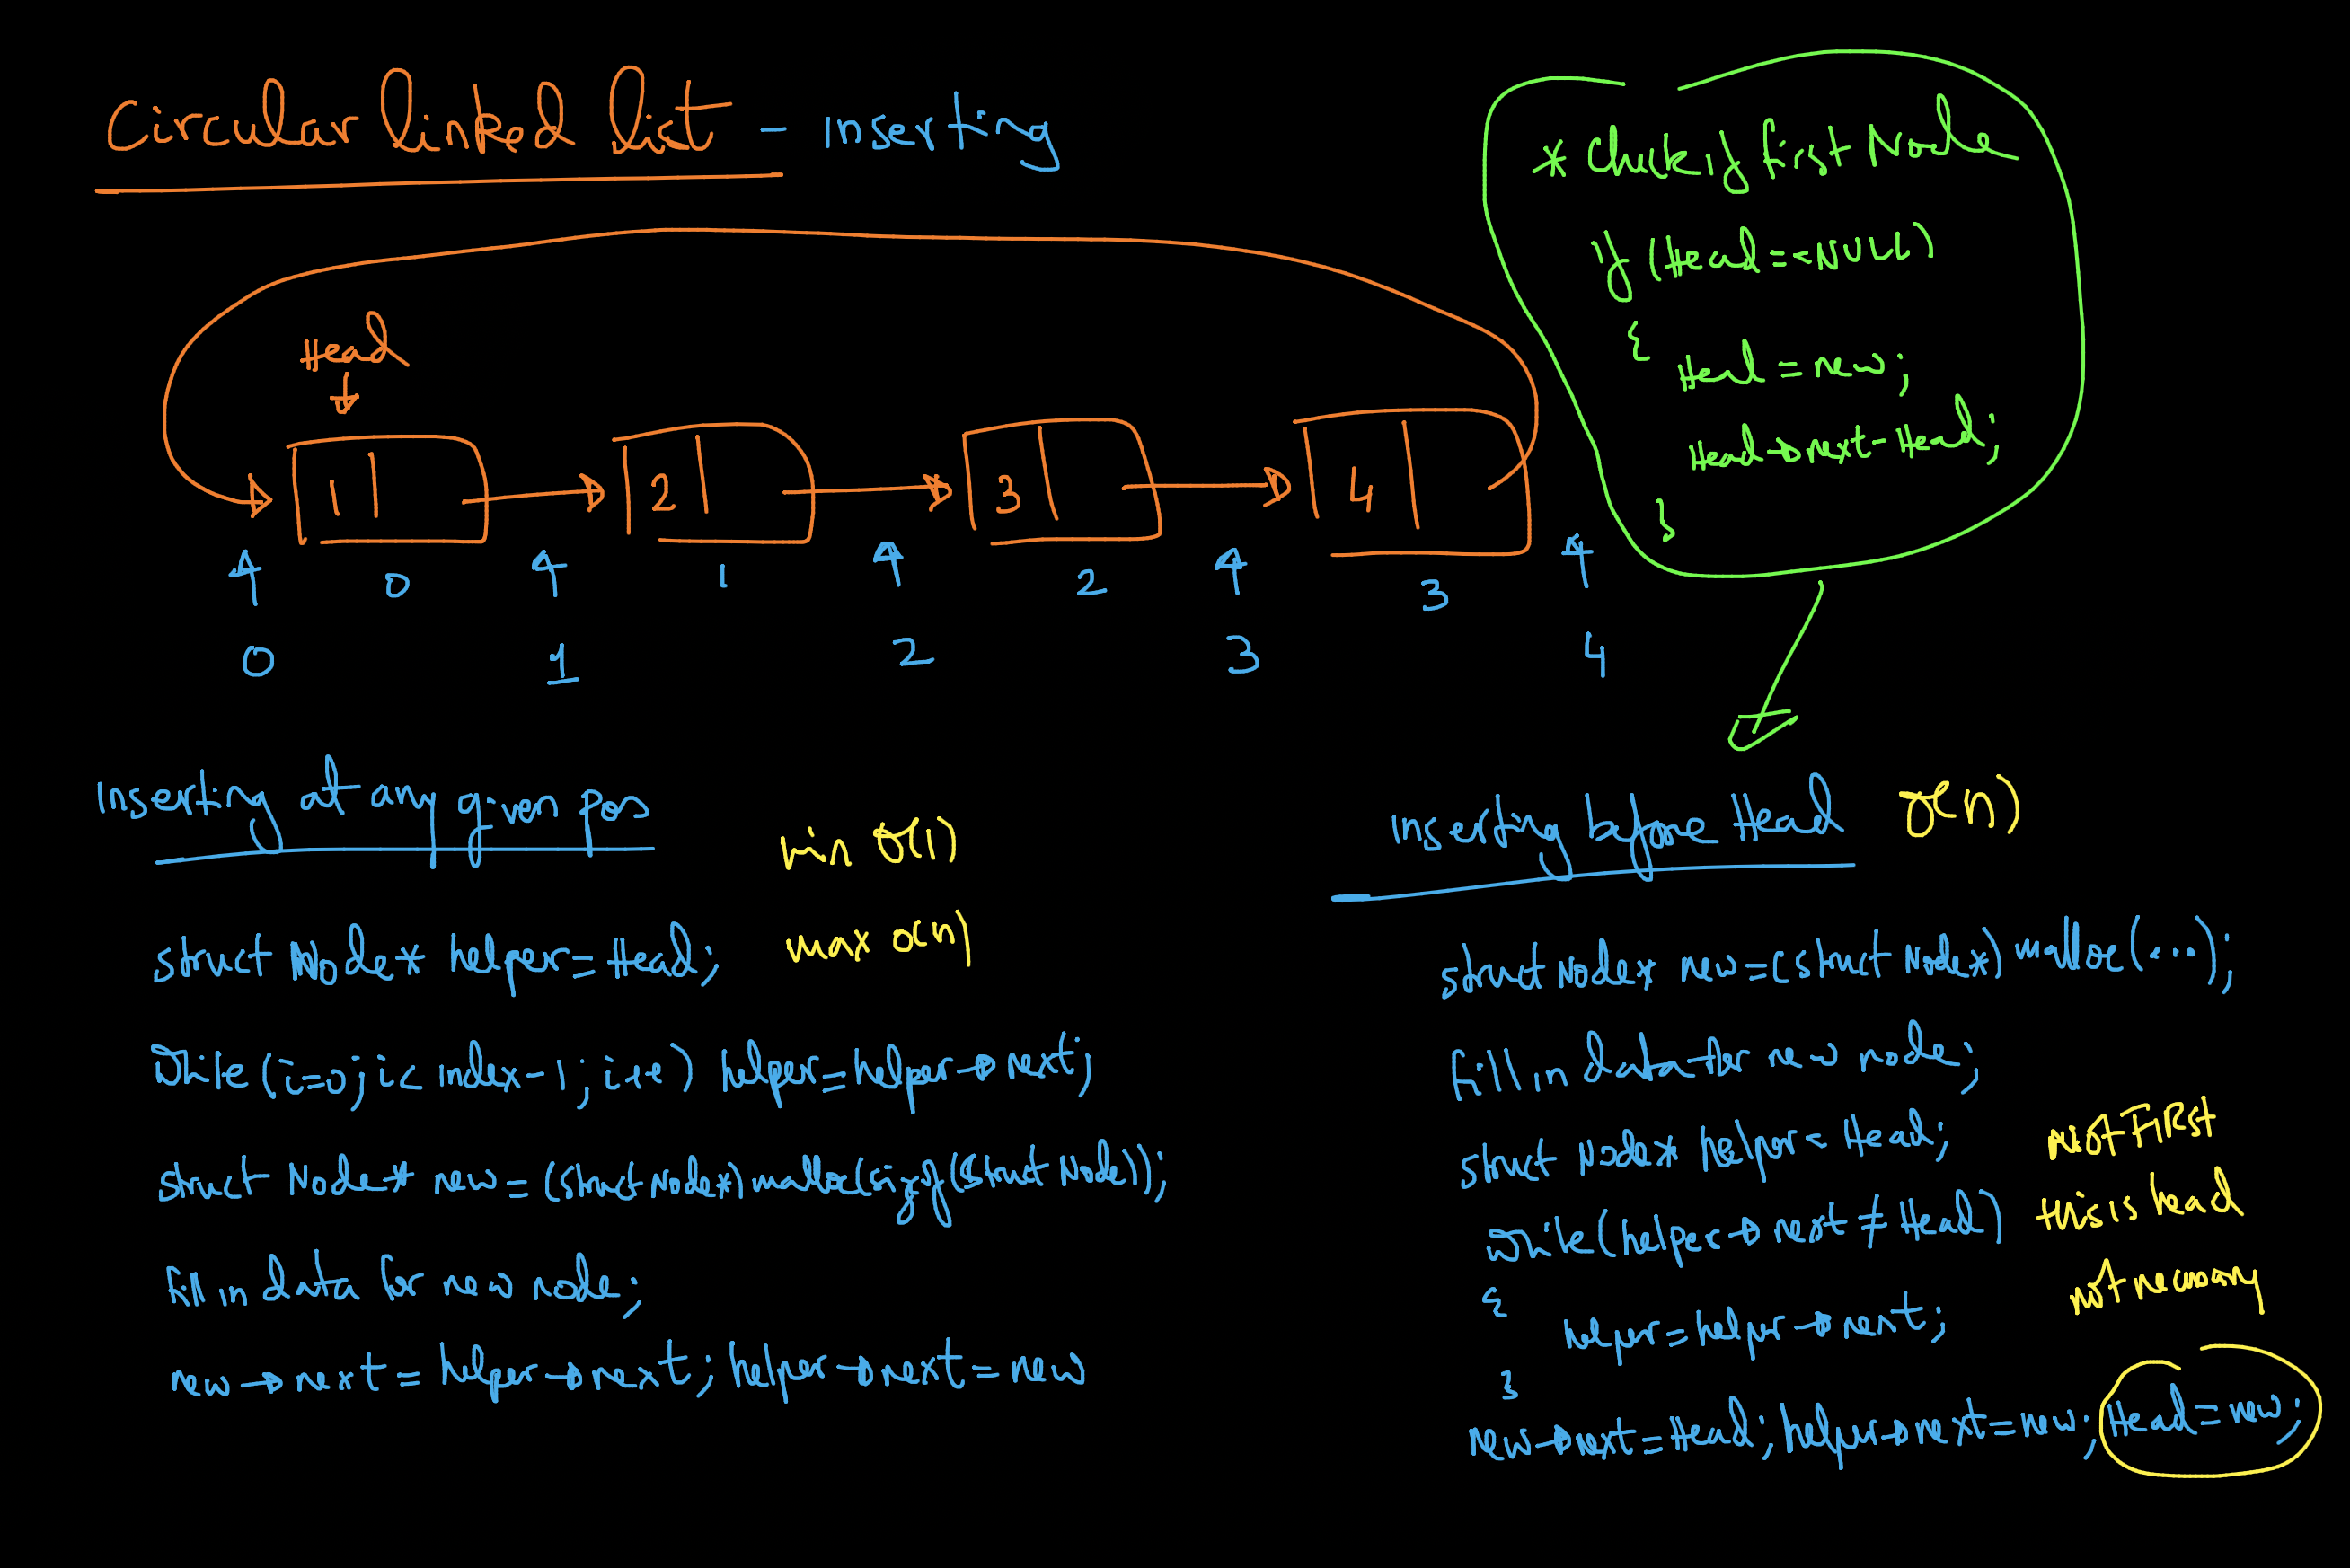 Circular linked list - inserting
* Check if first Node
if (Head==NULL)
{
Head = new;
Head→next-Head;
}
Head
↓
1 2 3 4
0 1 2 3
0 1 2 3 4
Inserting at any given pos
min O(1)
max O(n)
struct Node* helper=Head;
while (i=0; i< index-1; i++) helper=helper→next;
struct Node* new = (struct Node*) malloc(sizeof(struct Node));
fill in data for new node;
new→next = helper→next; helper→next = new
Inserting before Head O(n)
struct Node* new=(struct Node*) malloc(...);
fill in data for new node;
struct Node* helper= Head;
while (helper→next ≠ Head)
{
helper=helper→next;
}
new→next=Head; helper→next=new; Head=new;
NOT FIRST
this is head
not necessary